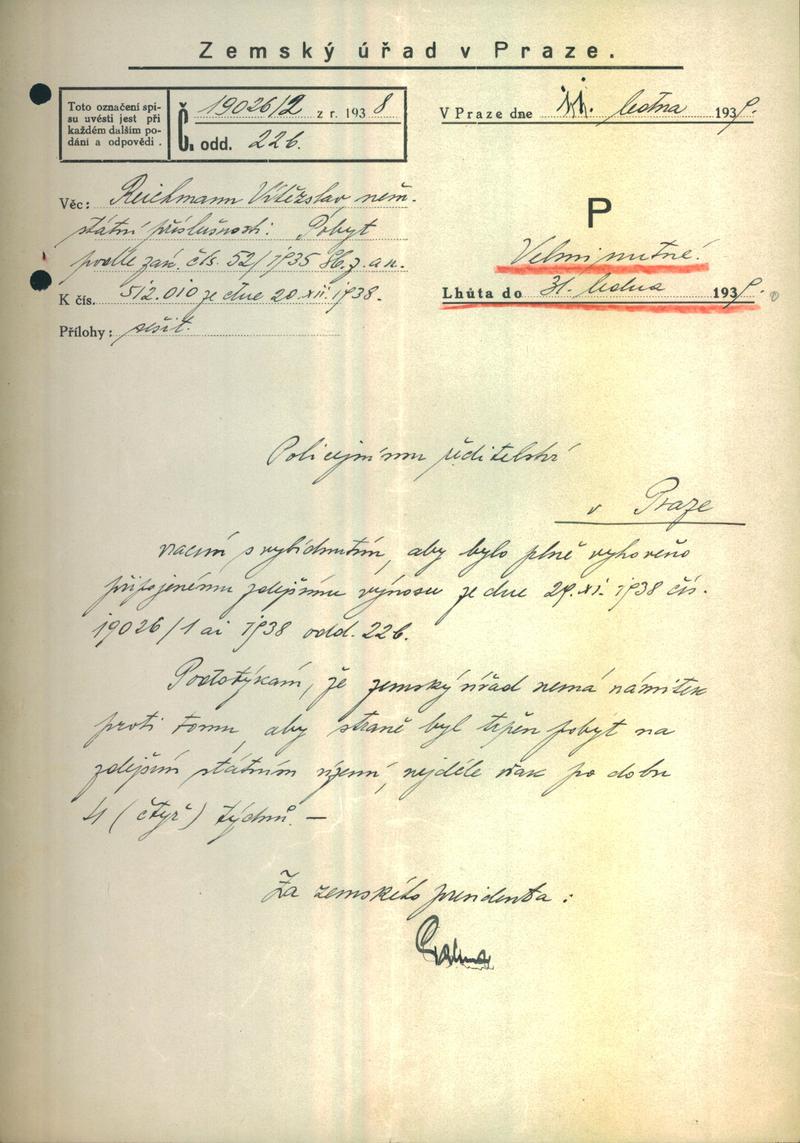 Zemský úřad v Praze.
Toto označení spi-
su uvésti jest při
každém dalším po-
dání a odpovědi.
Č. 19026/2 z r. 1938
odd. 22b.
V Praze dne 11. ledna 1939.
Věc: Reichmann Vítězslav, něm.
státní příslušnosti: Pobyt
podle zák. čís. 52/1935 Sb. z. a n.
K čís. 512.010 ze dne 20.XII.1938.
Přílohy: sešit.
P
Velmi nutné!
Lhůta do 31. ledna 1939.
Policejnímu ředitelství
v Praze
vracím s vybídnutím, aby bylo plně vyhověno
připojenému zdejšímu výnosu ze dne 29.XI.1938 čís.
19026/1 ai 1938 odd. 22b.
Podotýkám, že zemský úřad nemá námitek
proti tomu, aby straně byl trpěn pobyt na
zdejším státním území, nejdéle však po dobu
4 (čtyř) týdnů. —
Za zemského presidenta: